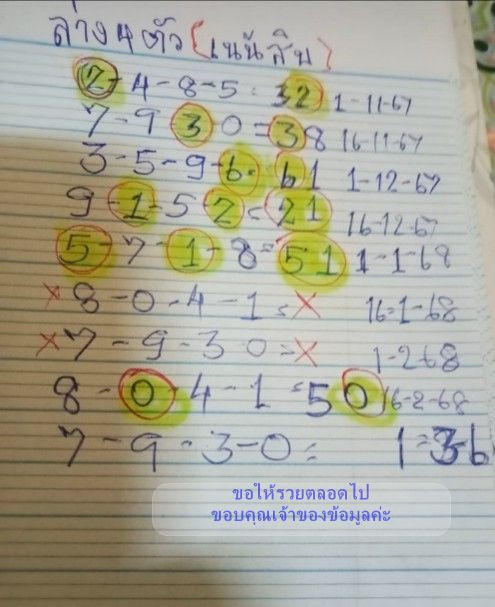 ล่าง 4 ตัว (เน้นสิบ)
2-4-8-5 = 32 1-11-67
7-9-3-0 = 38 16-11-67
3-5-9-6 = 61 1-12-67
9-1-5-2 = 21 16-12-67
5-7-1-8 = 51 1-1-68
× 8-0-4-1 = × 16-1-68
× 7-9-3-0 = × 1-2-68
8-0-4-1 = 50 16-2-68
7-9-3-0 = 1-3-6
ขอให้รวยตลอดไป
ขอบคุณเจ้าของข้อมูลค่ะ